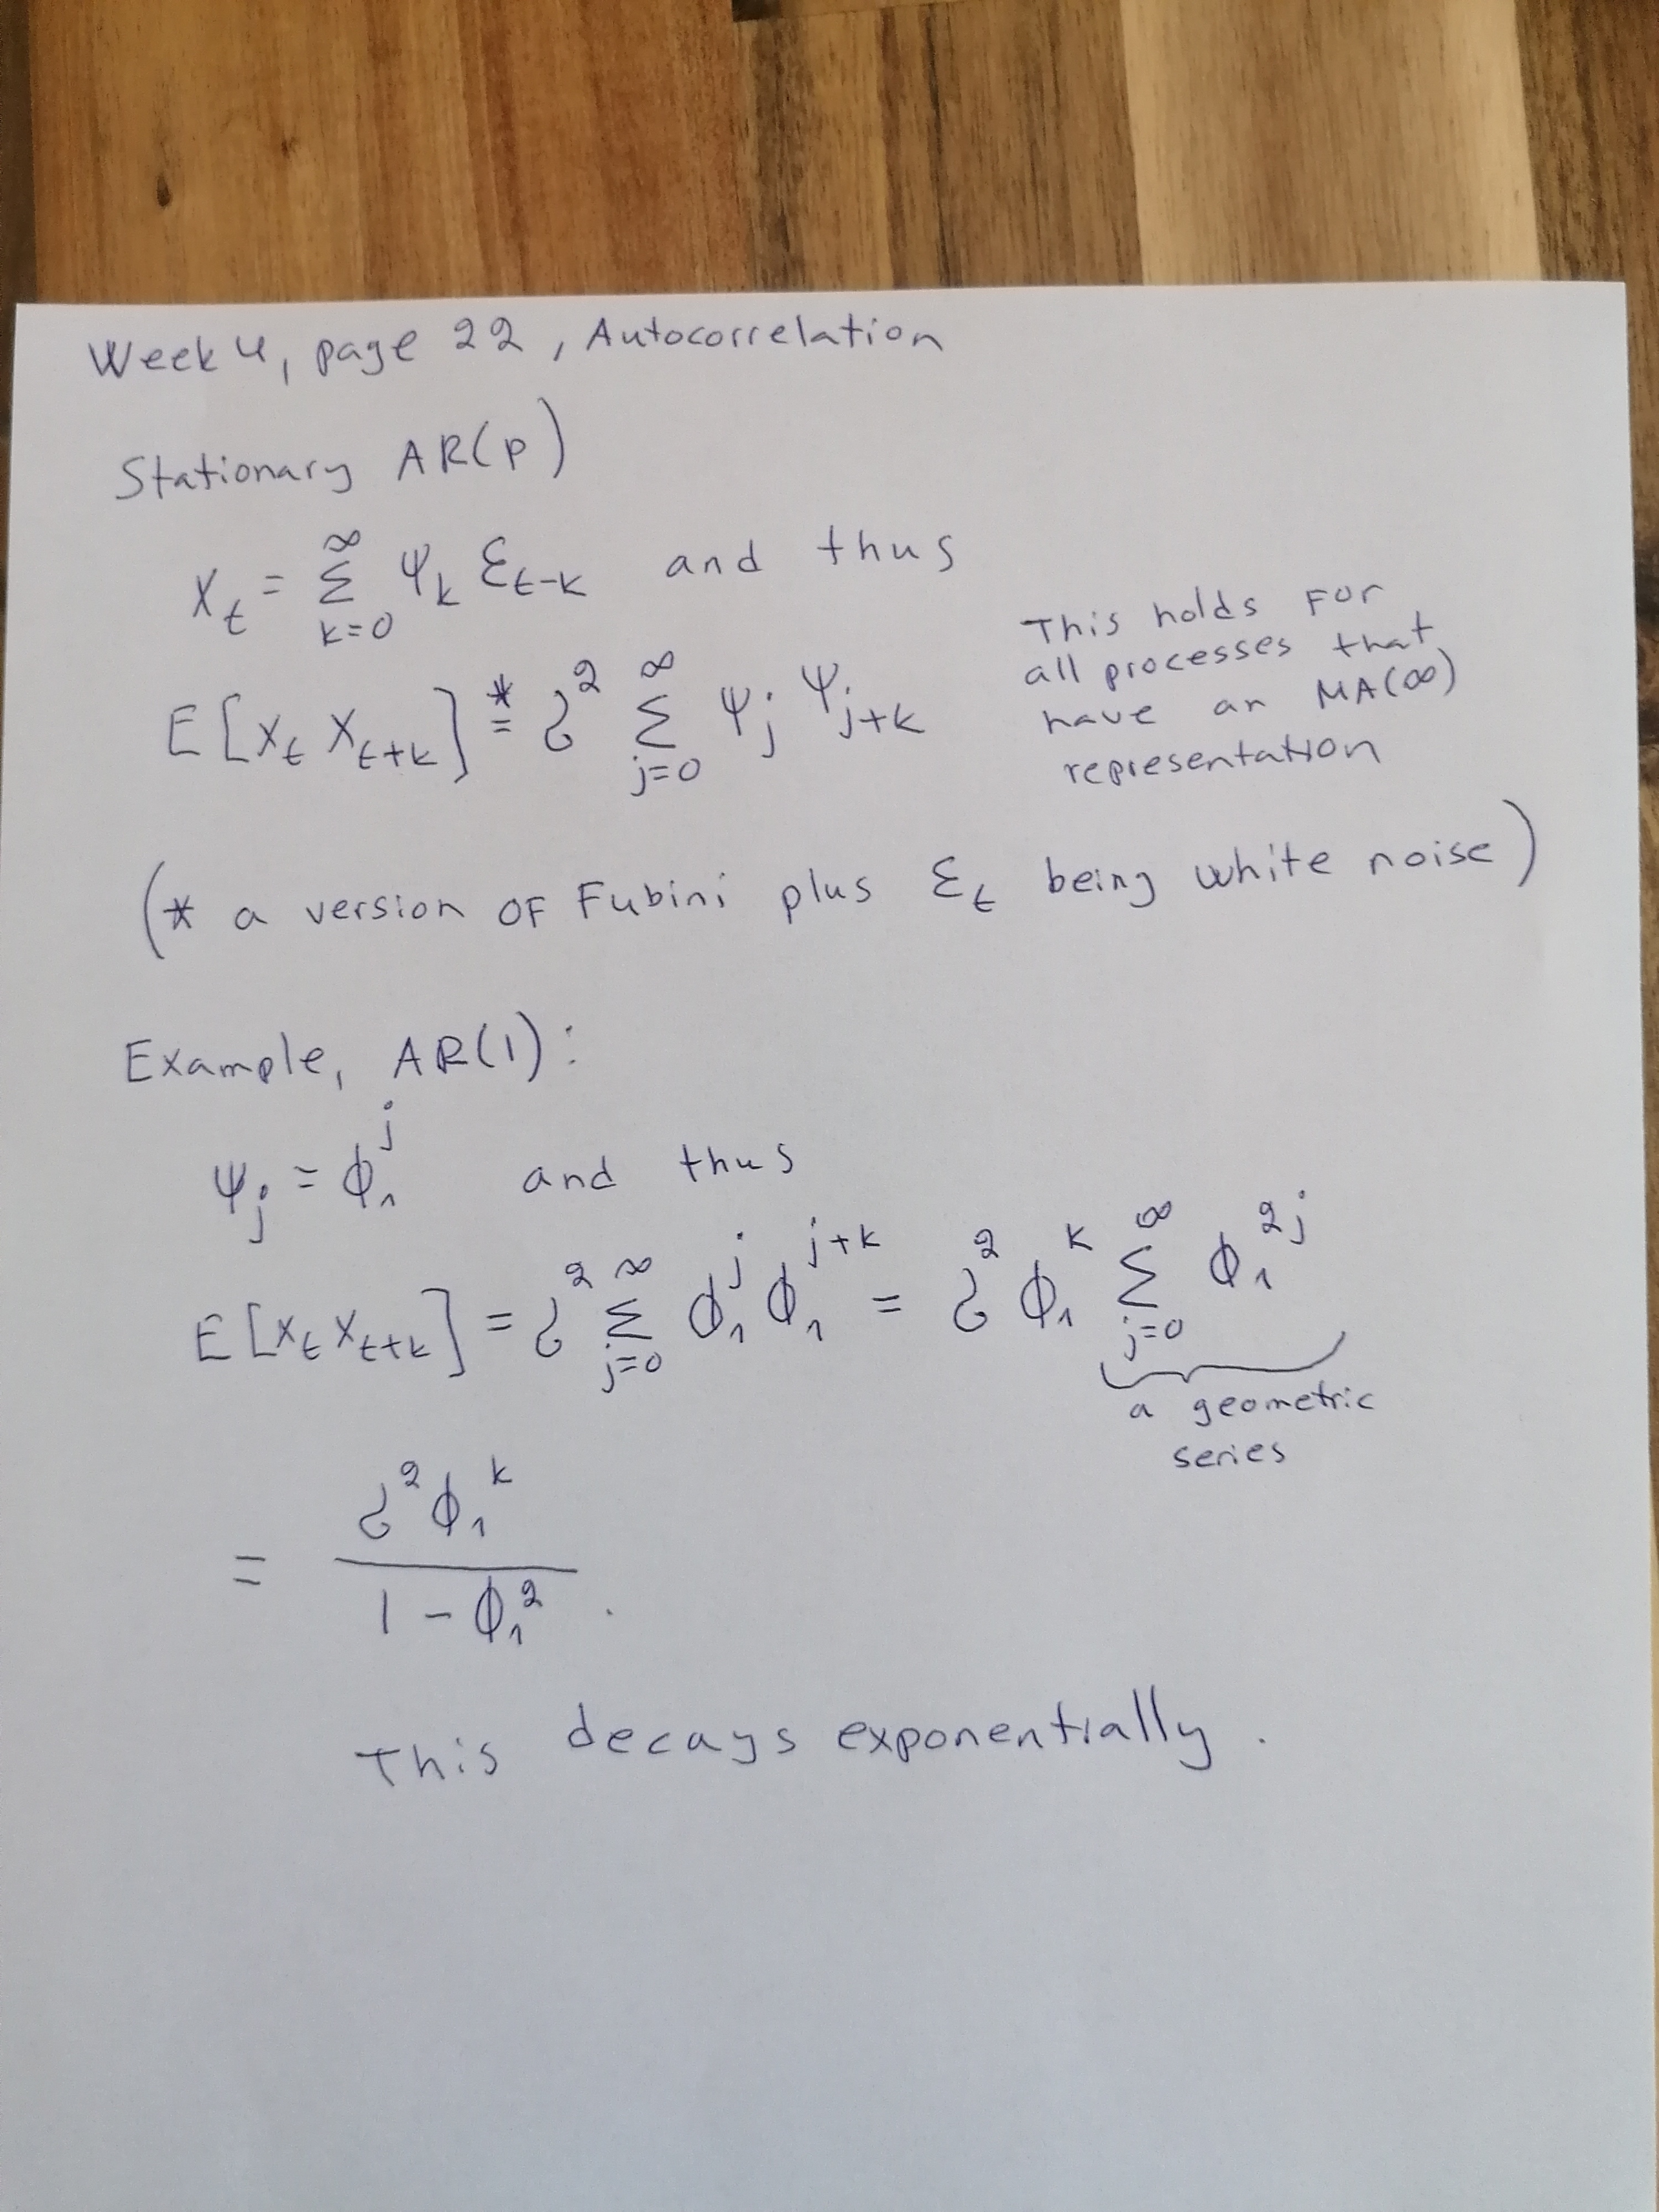 Week 4, page 22, Autocorrelation
Stationary AR(p)
X_t = Σ_{k=0}^{∞} Ψ_k ε_{t-k} and thus
E[X_t X_{t+k}] *= σ² Σ_{j=0}^{∞} Ψ_j Ψ_{j+k}
This holds for
all processes that
have an MA(∞)
representation
(* a version of Fubini plus ε_t being white noise)
Example, AR(1):
Ψ_j = ϕ_1^j and thus
E[X_t X_{t+k}] = σ² Σ_{j=0}^{∞} ϕ_1^j ϕ_1^{j+k} = σ² ϕ_1^k Σ_{j=0}^{∞} ϕ_1^{2j}
a geometric
series
= σ² ϕ_1^k / (1 - ϕ_1²).
This decays exponentially.